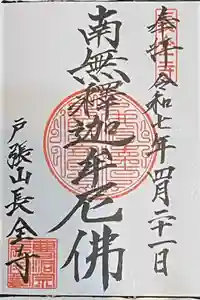 奉拝 令和七年四月二十一日
南無釋迦牟尼佛
戸張山長全寺